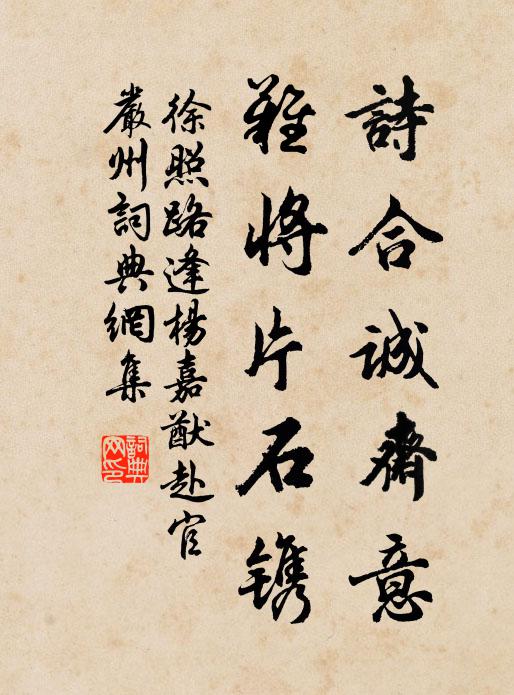 詩合誠齋意
難將片石鐫
徐照路逢楊嘉猷赴官
嚴州詞典網集
詞典
网印